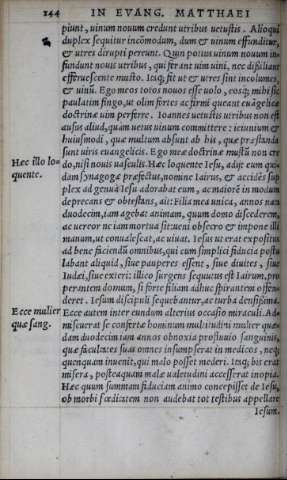 244 IN EVANG. MATTHAEI
piunt, uinum nouum credunt utribus uetustis. Alioqui
duplex sequitur incōmodum, dum & uinum effunditur,
& utres dirupti pereunt. Quin potius uinum nouum in-
fundunt nouis utribus, qui ferant uim uini, nec dissiliant
efferuescente musto. Itaq; sit ut & utres sint incolumes,
& uinū. Ego meos toros nouos esse uolo, eosq; mihi sic
paulatim fingo, ut olim fortes ac firmi queant euāgelicæ
doctrinæ uim perferre. Ioannes uetustis utribus non est
ausus aliud, quàm uetus uinum committere: ieiunium &
huiusmodi, quæ multum absunt ab his, quæ præstanda
sunt uiris euangelicis. Ego meæ doctrinæ mustū non cre
Hæc illo lo-
quente.
do, nisi nouis uasculis. Hæc loquente Iesu, adijt eum qui-
dam synagogæ præfectus, nomine Iairus, & accidēs sup
plex ad genua Iesu adorabat eum, ac maiorē in modum
deprecans & obtestans, ait: Filia mea unica, annos nata
duodecim, iam agebat animam, quum domo discederem,
ac uereor ne iam mortua sit: ueni obsecro & impone illi
manum, ut conualescat, ac uiuat. Iesus ut erat expositus
ad bene faciendū omnibus, qui cum simplici fiducia postu
labant aliquid, siue pauperes essent, siue diuites, siue
Iudæi, siue exteri: illico surgens sequutus est Iairum, pro
perantem domum, si forte filiam adhuc spirantem offen-
deret. Iesum discipuli sequebantur, ac turba densissima.
Ecce mulier
quæ sang.
Ecce autem inter eundum alterius occasio miraculi. Ad-
miscuerat se confertæ hominum multitudini mulier quæ-
dam duodecim iam annos obnoxia profluuio sanguinis,
quæ facultates suas omnes insumpserat in medicos, neq;
quenquam inuenit, qui malo posset mederi. Itaq; bis erat
misera, posteaquam malæ ualetudini accesserat inopia.
Hæc quum summam fiduciam animo concepisset de Iesu,
ob morbi fœditatem non audebat tot testibus appellare
Iesum.